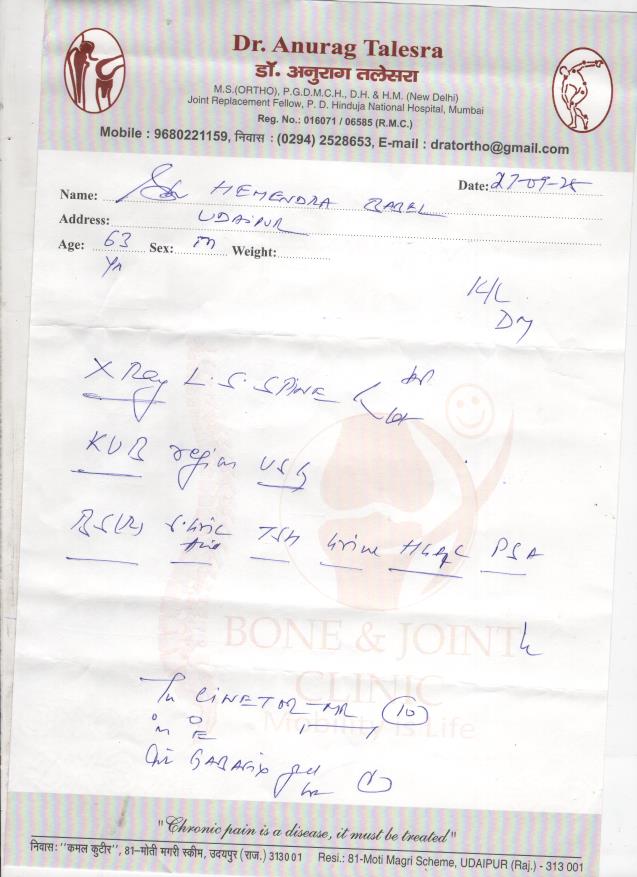 Dr. Anurag Talesra
डॉ. अनुराग तलेसरा
M.S.(ORTHO), P.G.D.M.C.H., D.H. & H.M. (New Delhi)
Joint Replacement Fellow, P. D. Hinduja National Hospital, Mumbai
Reg. No.: 016071 / 06585 (R.M.C.)
Mobile : 9680221159, निवास : (0294) 2528653, E-mail : dratortho@gmail.com
Date: 27-09-25
Name: HEMENDRA BABEL
Address: UDAIPUR
Age: 63 Sex: M Weight:
Yr
K/C
DM
X Ray L.S. SPINE AP
Lat
KUB region USG
BS(R) S. Uric TSH Urine HbA1C PSA
Acid
BONE & JOINT
CLINIC
Mobility is Life
CINETOL-MR 10
GABASIX gel 1
"Chronic pain is a disease, it must be treated"
निवास: "कमल कुटीर", 81-मोती मगरी स्कीम, उदयपुर (राज.) 313001 Resi.: 81-Moti Magri Scheme, UDAIPUR (Raj.) - 313 001